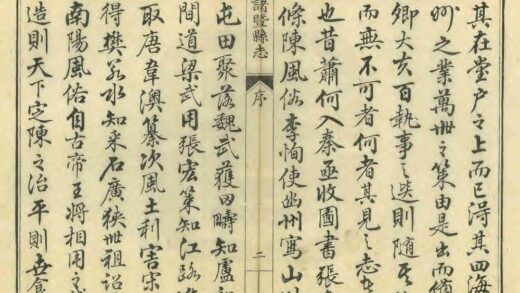 其在堂户之上而已得其四海
州之業萬世之策由是出而備
卿大夫百執事之選則隨其
而無不可者何者其見之志在
也昔蕭何入秦亟收圖書張
條陳風俗李恂使幽州寫山
諸暨縣志
序
二
屯田聚落魏武獲田疇知盧
間道梁武用張宏策知江路
取唐韋澳纂次風土利害宋
得樊若水知采石廣狹世祖詔
南陽風俗自古帝王將相用之
造則天下定陳之治平則世食